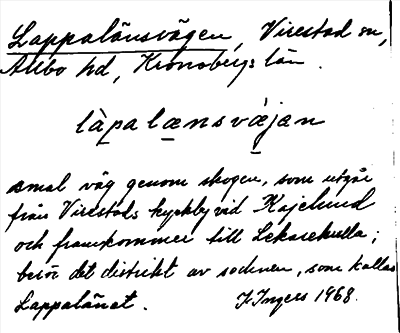 Lappalänsvägen, Virestad sn,
Allbo hd, Kronobergs län.
là̱pa læ̱nsvæ̀jan
smal väg genom skogen, som utgår
från Virestads kyrkby vid Kajelund
och framkommer till Lekarekulla;
berör det distrikt av socknen, som kallas
Lappalänet. I. Ingers 1968.